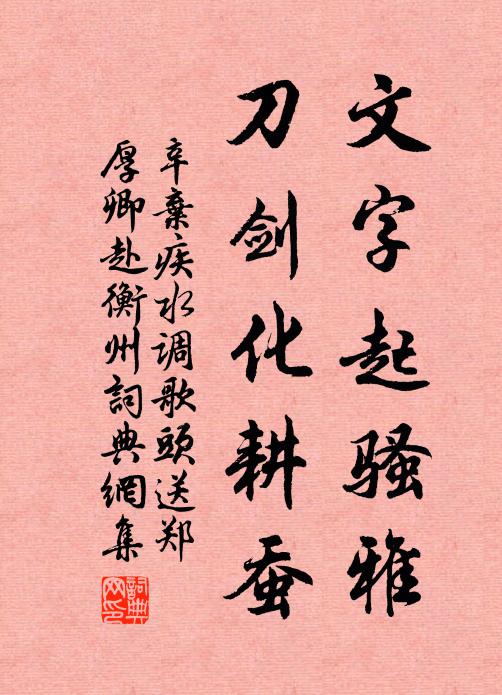 文字起骚雅
刀剑化耕蚕
辛棄疾水调歌頭送郑
厚卿赴衡州詞典網集
詞典網印